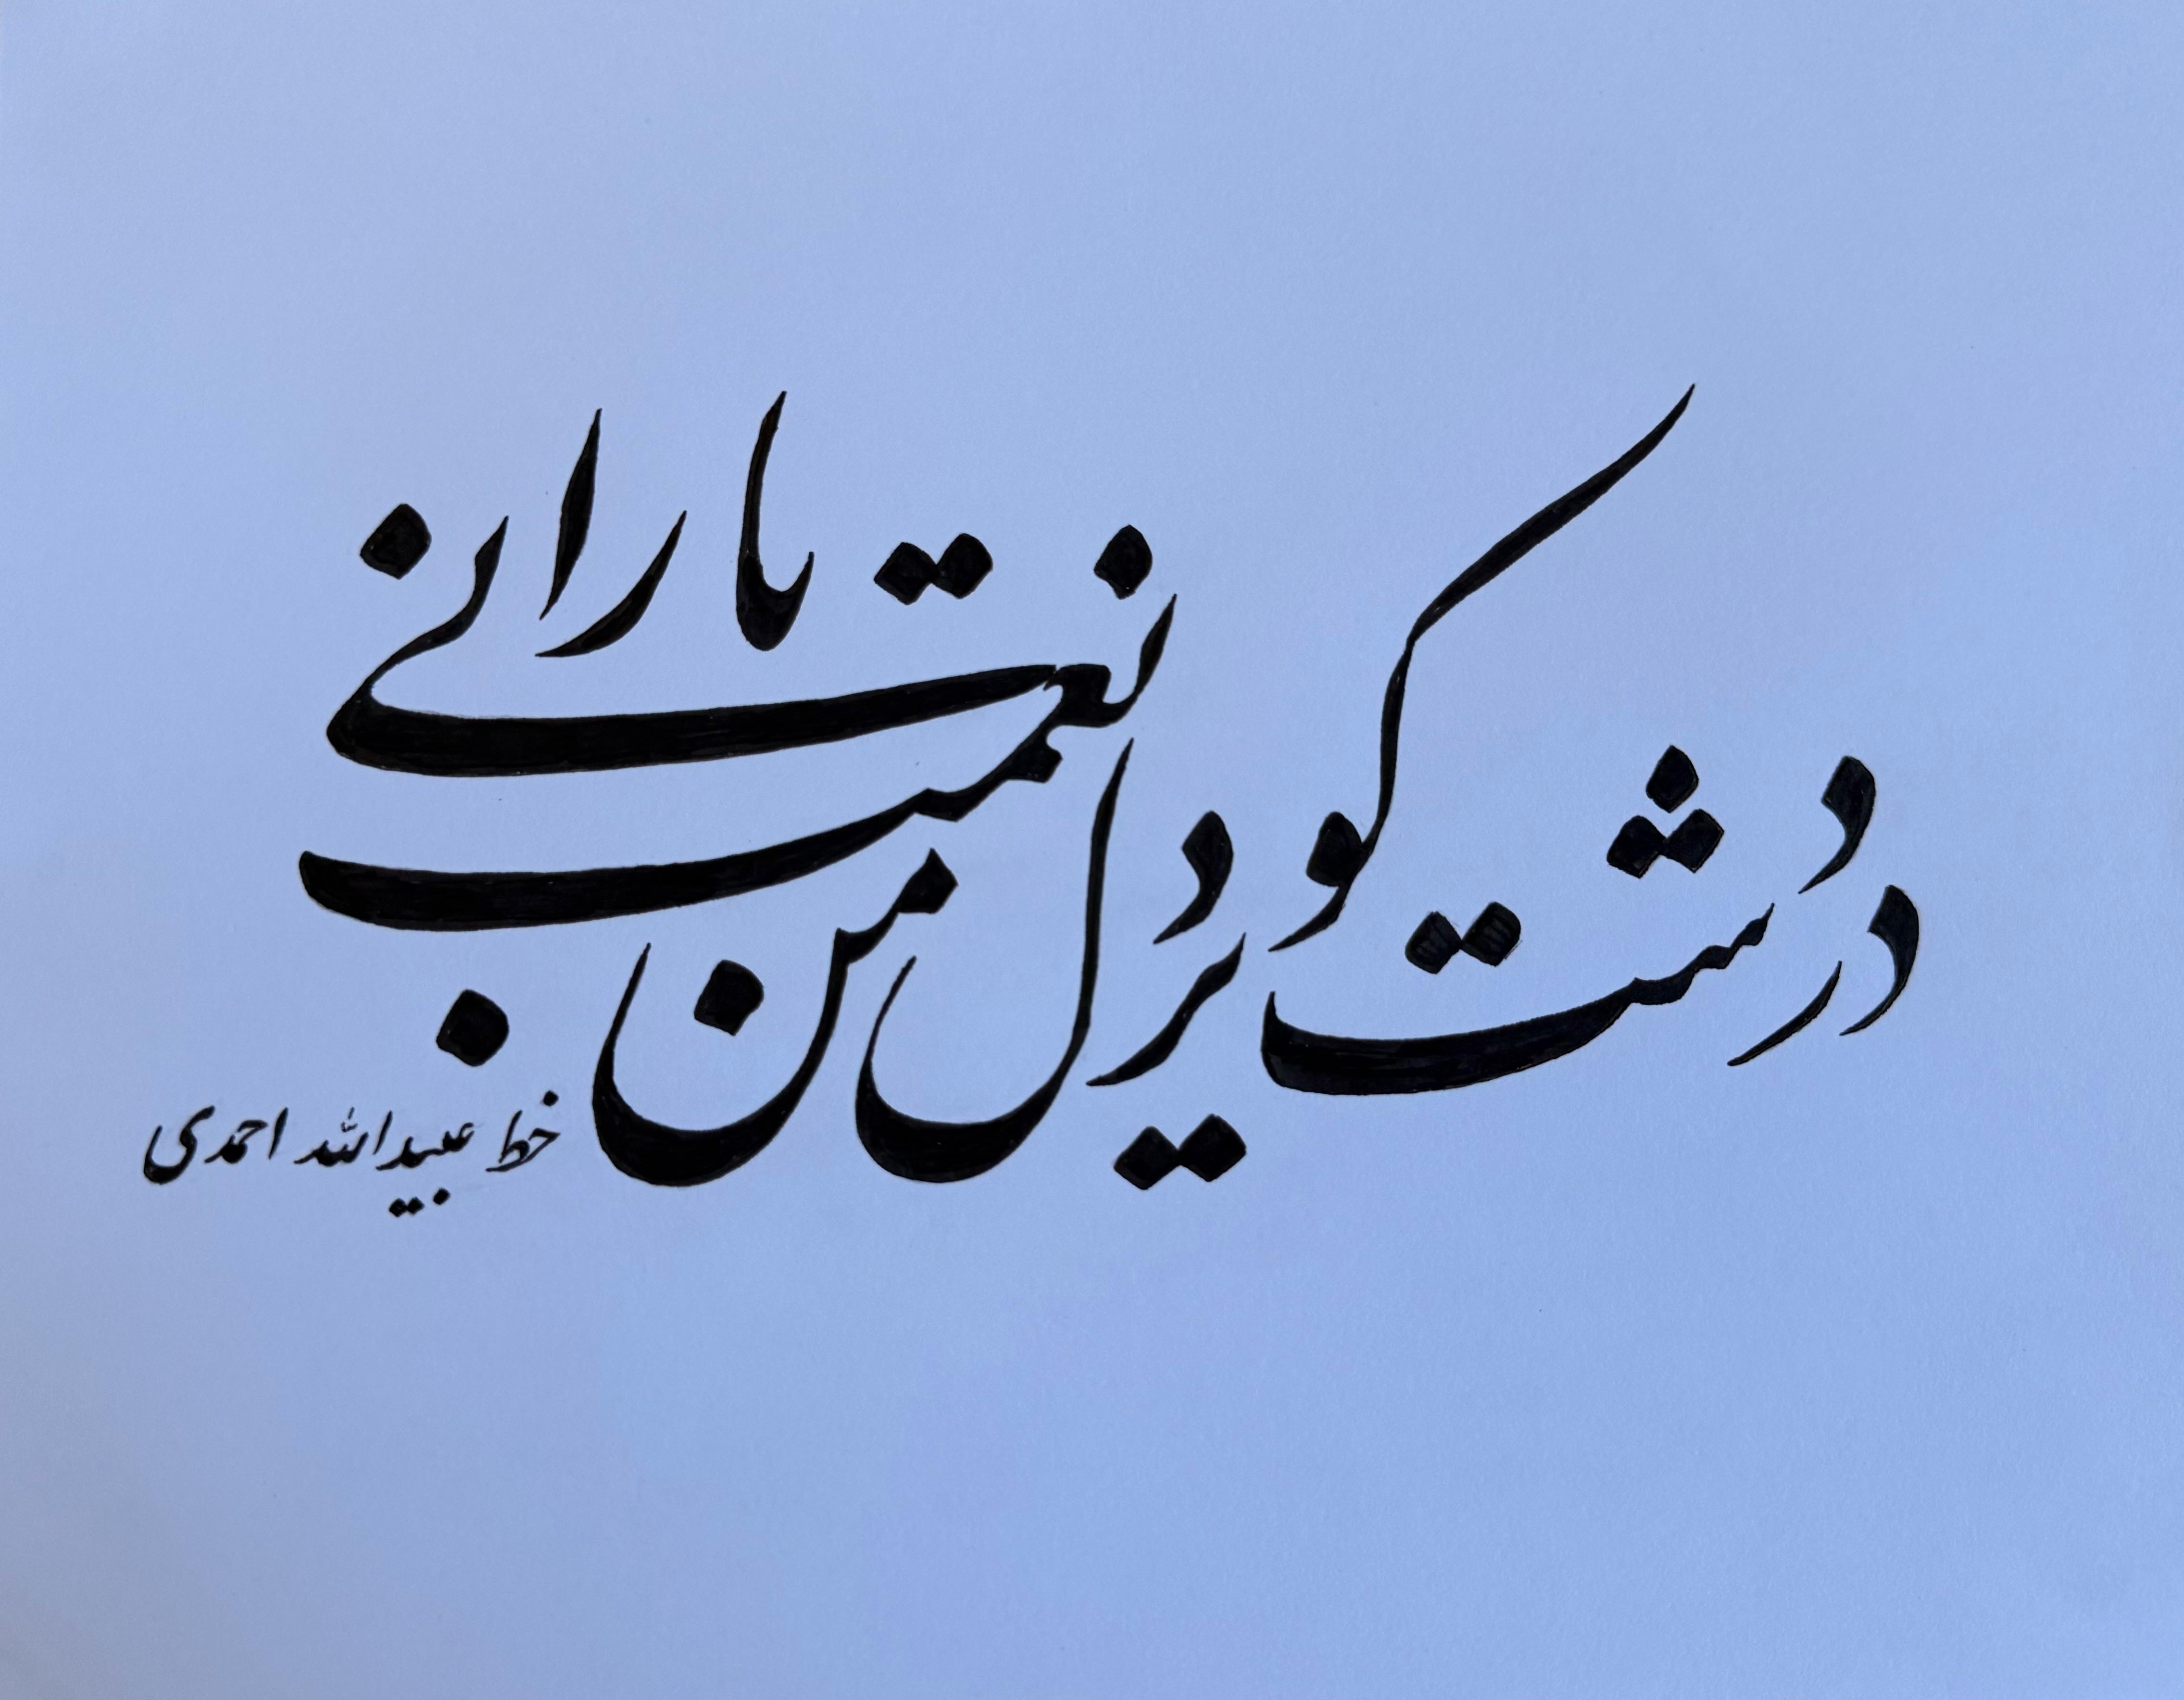 در دشت کویر دل من نعمت بارانی
خط عبیدالله احمدی